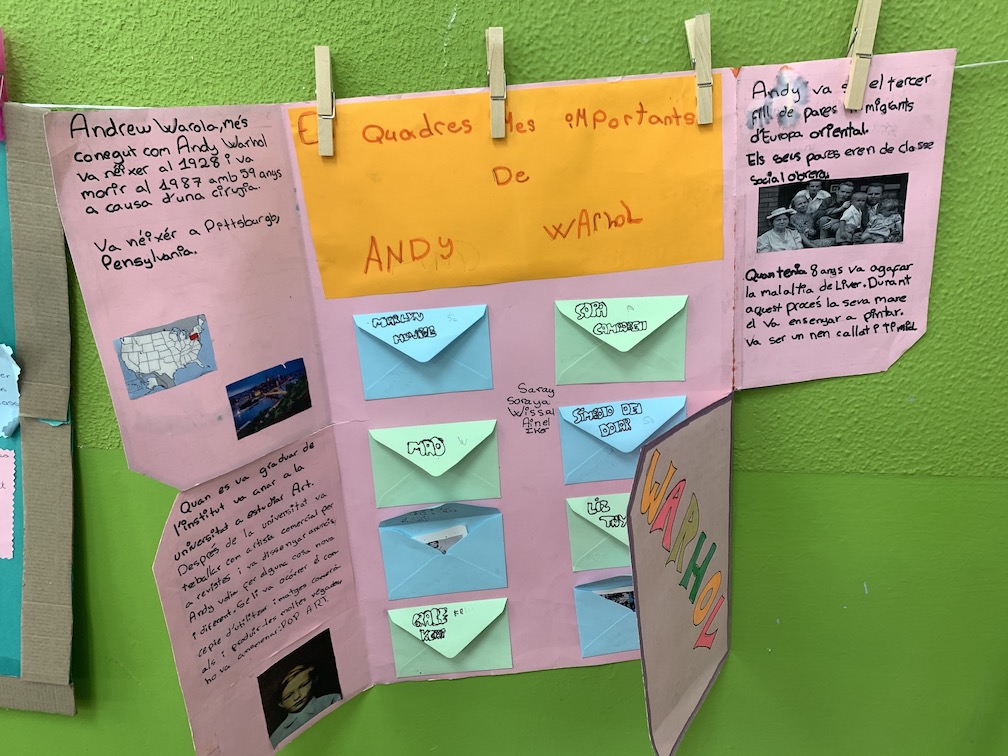 Andrew Warola, més
conegut com Andy Warhol
va néixer al 1928 i va
morir al 1987 amb 59 anys
a causa d'una cirugia.
Va néixér a Pittsburgb,
Pensylvania.
Quan es va graduar de
l'institut va anar a la
universitat a estudiar Art.
Després de la universitat va
treballar com artista comercial per
a revistes i va dissenyar anuncis.
Andy volia fer alguna cosa nova
i diferent. Se li va ocórrer el con-
cepte d'utilitzar imatges
als i produir-les moltes vegades
ho va anomenar: POP ART.
Quadres Mes iMPortants
De
ANDY WARHOL
MARILYN
SOPA
CAMPBELL
Saray
Soraya
Wissal
Ainel
Iker
MAO
LIZ
Andy va el tercer
fill de pares migrants
d'Europa oriental.
Els seus pares eren de classe
social obrera.
Quan tenia 8 anys va agafar
la malaltia de Liver. Durant
aquest procés la seva mare
el va ensenyar a pintar.
va ser un nen callat i tímid
WARHOL